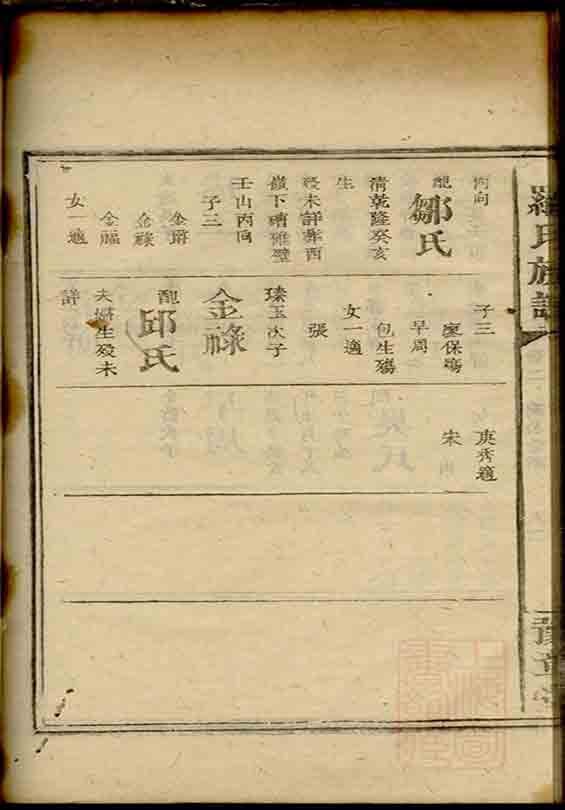 羅氏族譜
豫章
丙向
配鄒氏
清乾隆癸亥
生
歿未詳葬酉
嶺下嘈碓壁
壬山丙向
子三
金爵
金祿
金福
女一適
子三
廖保殤
早周
包生殤
女一適
張
瑧玉次子
金祿
配邱氏
夫婦生歿未
詳
庚秀適
宋